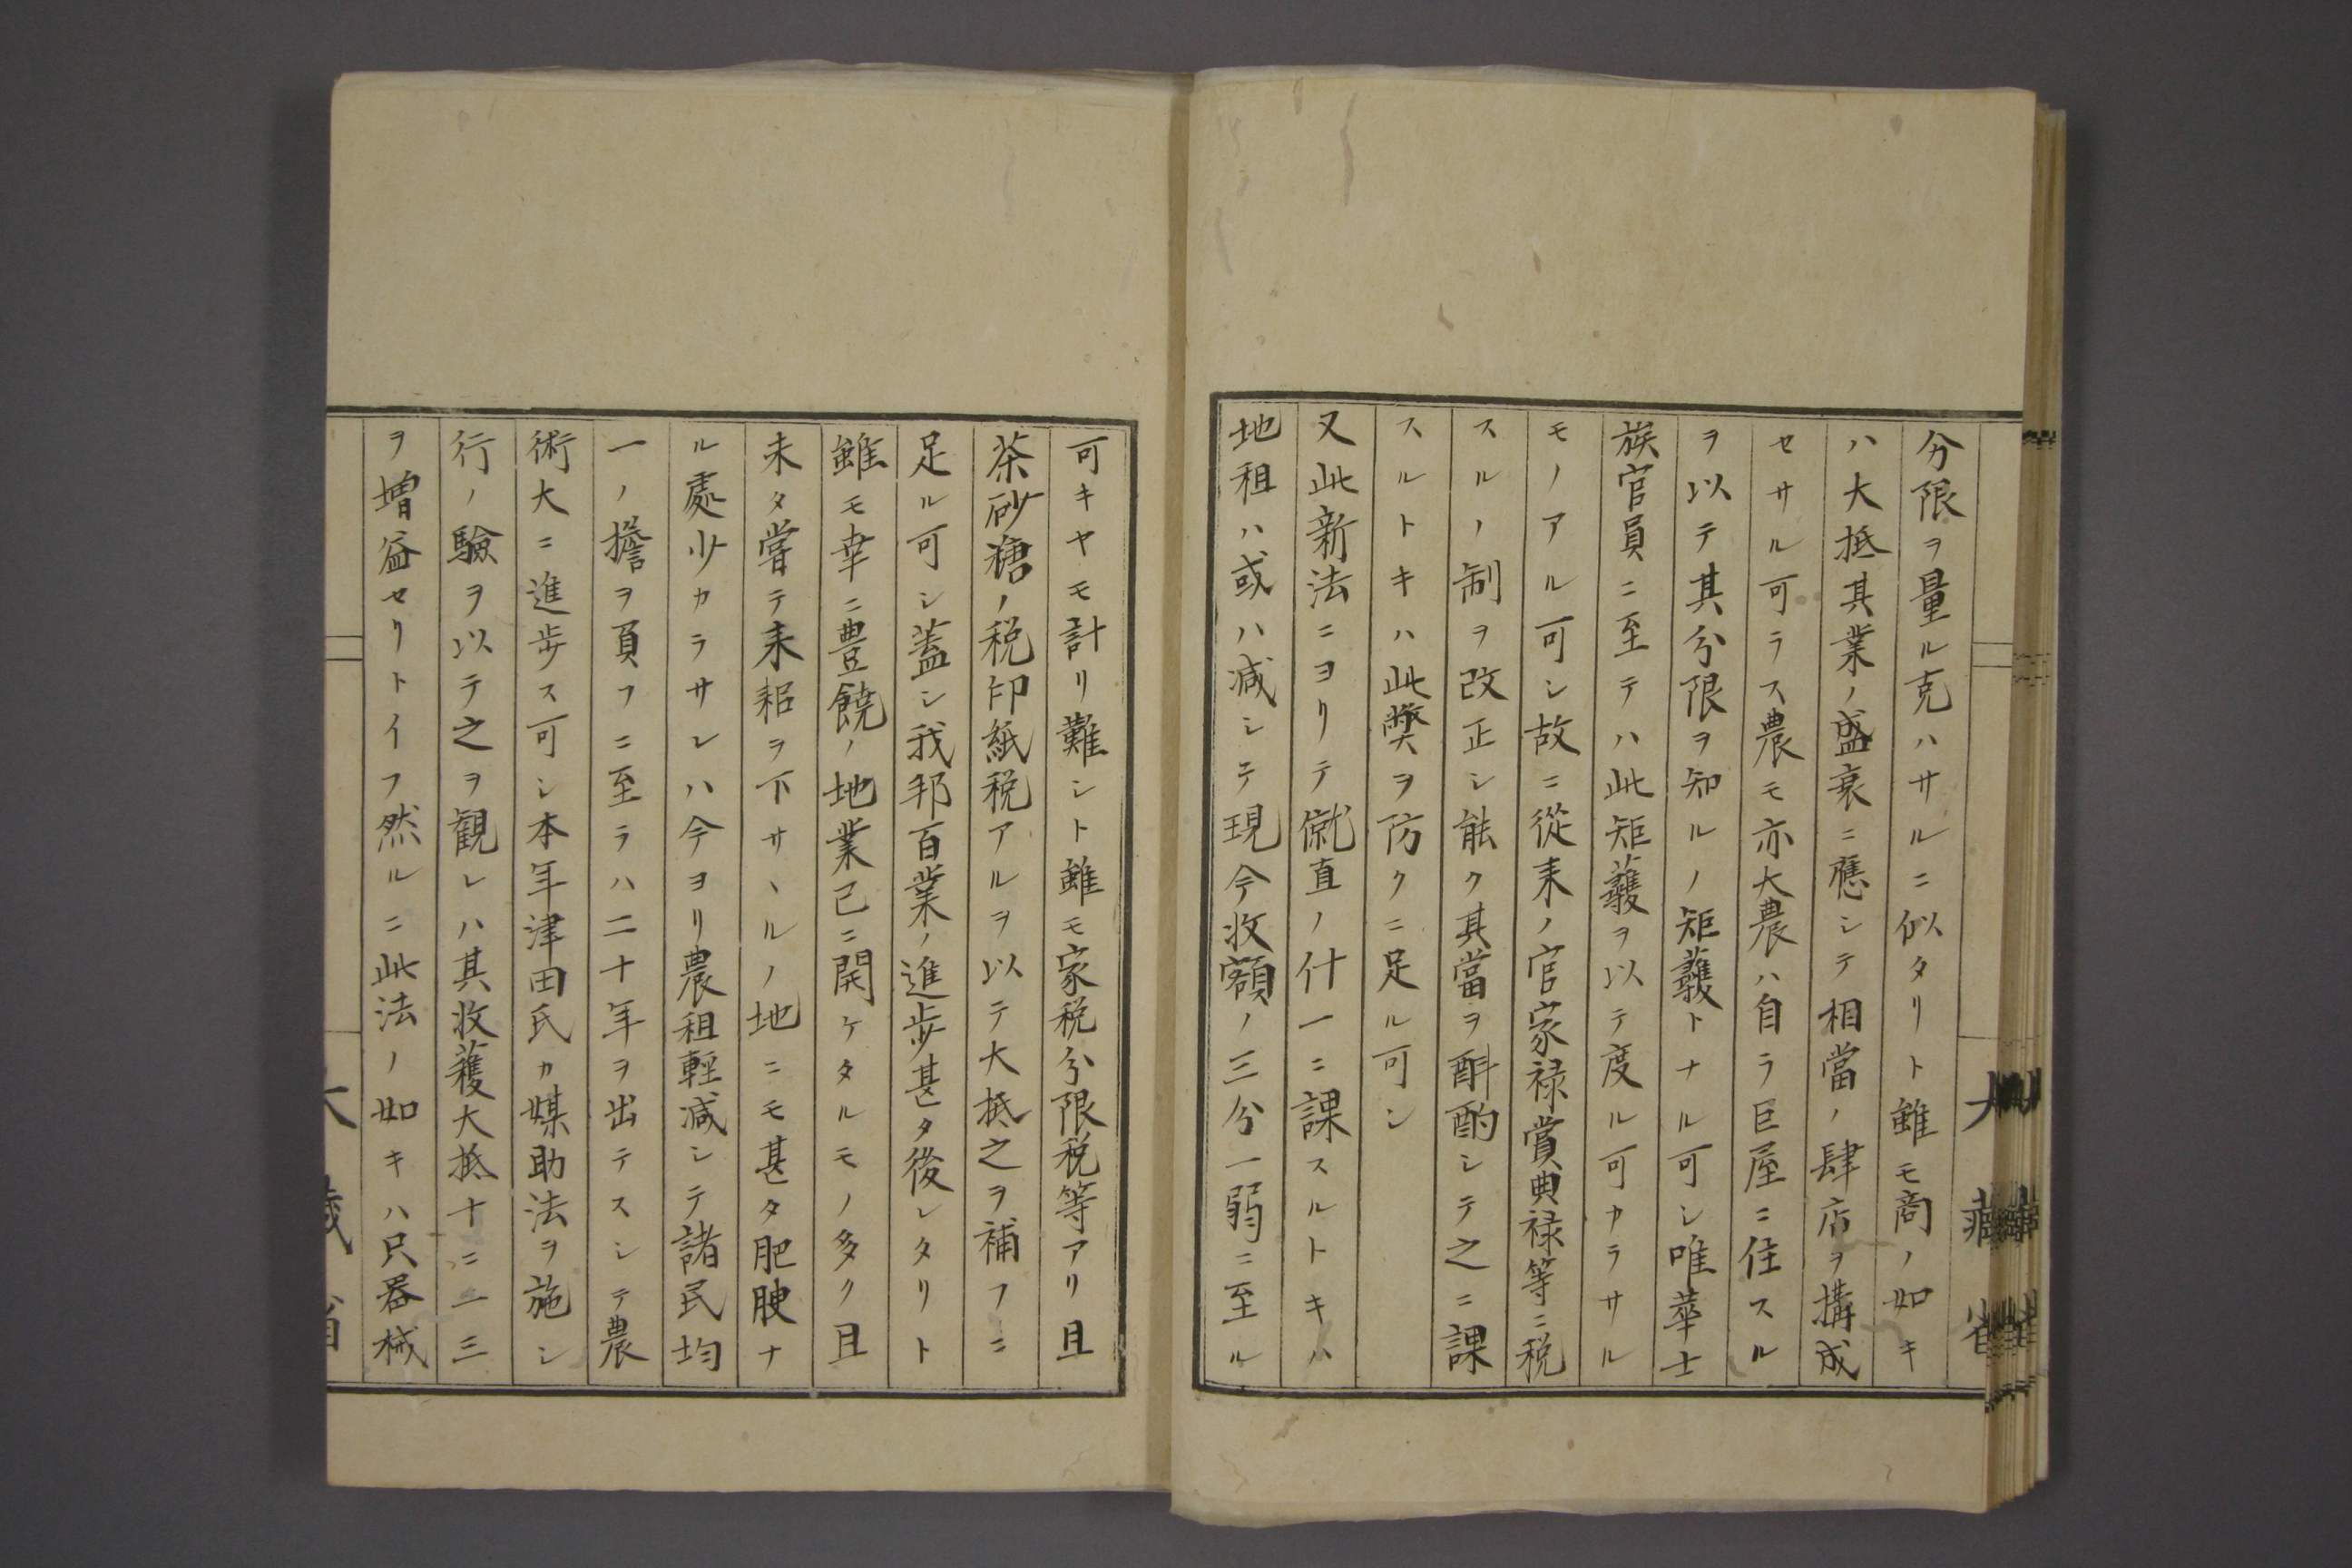 分限ヲ量ル克ハサルニ似タリト雖モ商ノ如キ
ハ大抵其業ノ盛衰ニ應シテ相當ノ肆店ヲ搆成
セサル可ラス農モ亦大農ハ自ラ巨屋ニ住スル
ヲ以テ其分限ヲ知ルノ矩蠖トナル可シ唯華士
族官員ニ至テハ此矩蠖ヲ以テ度ル可カラサル
モノアル可シ故ニ從来ノ官家禄賞典禄等ニ税
スルノ制ヲ改正シ能ク其當ヲ酙酌シテ之ニ課
スルトキハ此獘ヲ防クニ足ル可シ
又此新法ニヨリテ僦直ノ什一ニ課スルトキハ
地租ハ或ハ減シテ現今收額ノ三分一弱ニ至ル
可キヤモ計リ難シト雖モ家税分限税等アリ且
茶砂糖ノ税印紙税アルヲ以テ大抵之ヲ補フニ
足ル可シ蓋シ我邦百業ノ進歩甚タ後レタリト
雖モ幸ニ豊饒ノ地業已ニ開ケタルモノ多ク且
未タ嘗テ耒耜ヲ下サヽルノ地ニモ甚タ肥腴ナ
ル處少カラサレハ今ヨリ農租輕減シテ諸民均
一ノ擔ヲ負フニ至ラハ二十年ヲ出テスシテ農
術大ニ進歩ス可シ本年津田氏カ媒助法ヲ施シ
行ノ驗ヲ以テ之ヲ観レハ其收穫大抵十ニ二三
ヲ増益セリトイフ然ルニ此法ノ如キハ只器械
大藏省